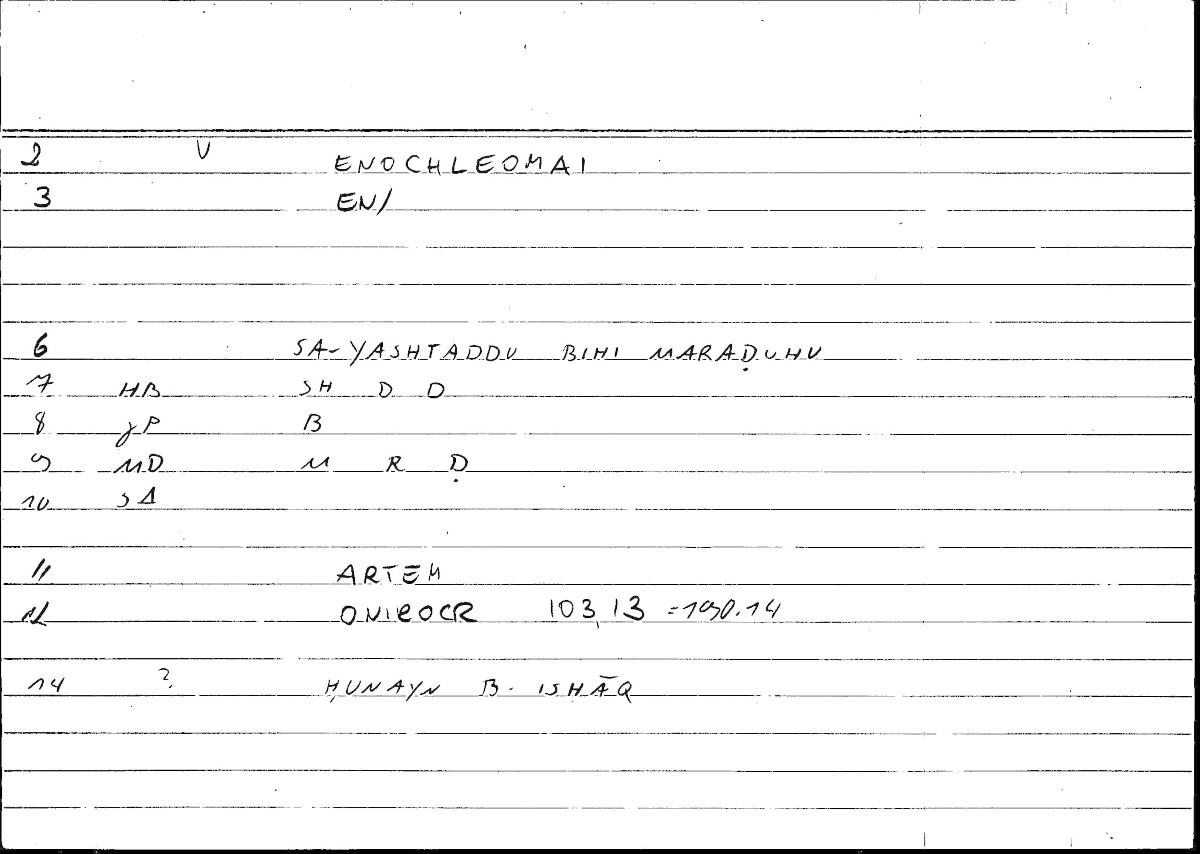 2 V ENOCHLEOMAI
3 EN/
6 SA-YASHTADDU BIHI MARAḌUHU
7 HB SH D D
8 JP B
9 MD M R Ḍ
10 SA
11 ARTEM
12 ONIROCR 103,13 =190.14
14 ? ḤUNAYN B. ISḤĀQ